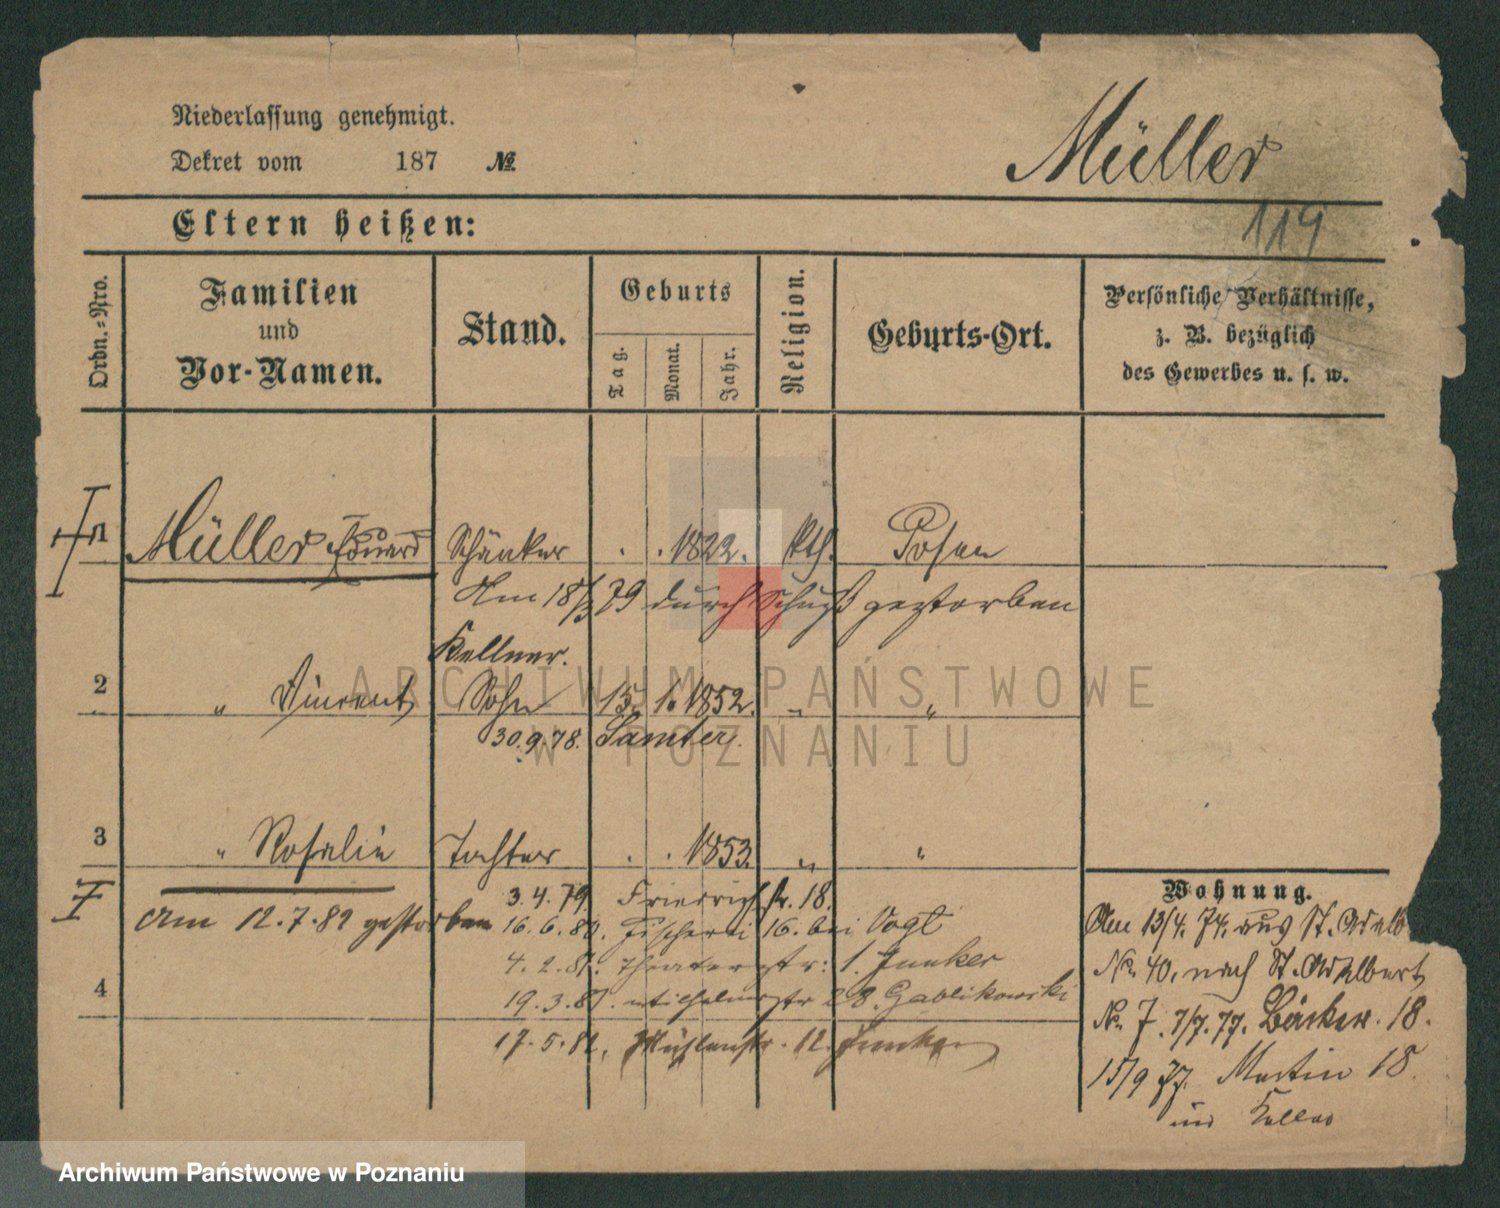 Niederlassung genehmigt.
Dekret vom 187 №
Müller
119
Eltern heißen:
Ordn.-Nro.
Familien
und
Vor-Namen.
Stand.
Geburts
Tag.
Monat.
Jahr.
Religion.
Geburts-Ort.
Persönliche Verhältnisse,
z. B. bezüglich
des Gewerbes u. s. w.
1 Müller Eduard Schänker . . 1822. kth. Posen
Am 18/3 79 durch Schuß gestorben
Kellner.
2 " Vincent Sohn 15. 1. 1852. " "
30.9.78. Samter.
3 " Rosalie Tochter . . 1853. " "
3.4.79. Friedrichstr. 18.
Am 12.7.82 gestorben
16.6.80. Fischerei 16. bei Vogt
4.2.81. Theaterstr: 1. Junker
4
19.3.81. Wilhelmstr 28. Gablikowski
17.5.82. Mühlenstr. 12. Junker
Wohnung.
Am 13/4. 74. aus St. Adalb
No 40, nach St. Adalbert
No 7. 7/7. 77. Bäcker. 18.
15/9 77. Martin 18.
im Keller
ARCHIWUM PAŃSTWOWE
W POZNANIU
Archiwum Państwowe w Poznaniu